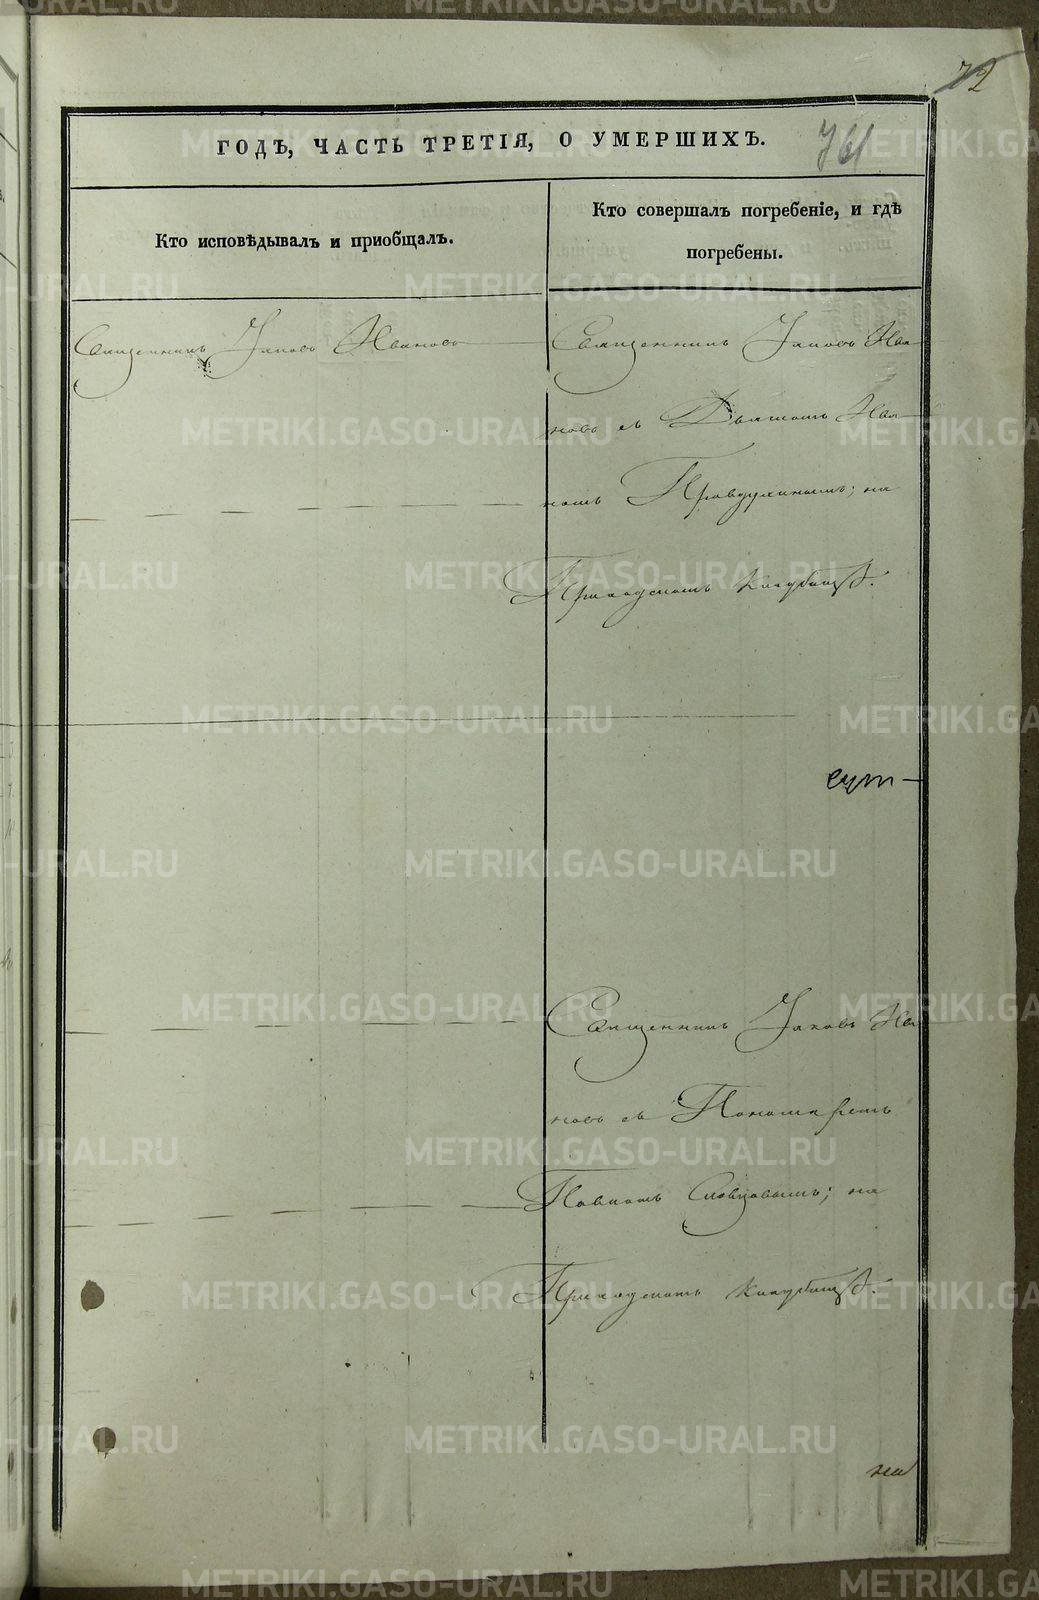 72
ГОДЪ, ЧАСТЬ ТРЕТІЯ, О УМЕРШИХЪ.
761
Кто исповѣдывалъ и приобщалъ.
Кто совершалъ погребеніе, и гдѣ
погребены.
Священникъ Іаковъ Ивановъ
Священникъ Іаковъ Ива
новъ съ Дьячкомъ Ива
номъ Правдухинымъ; на
Приходскомъ кладбищѣ.
Священникъ Іаковъ Ива
новъ съ Пономаремъ
Павломъ Словцовымъ; на
Приходскомъ кладбищѣ.
METRIKI.GASO-URAL.RU